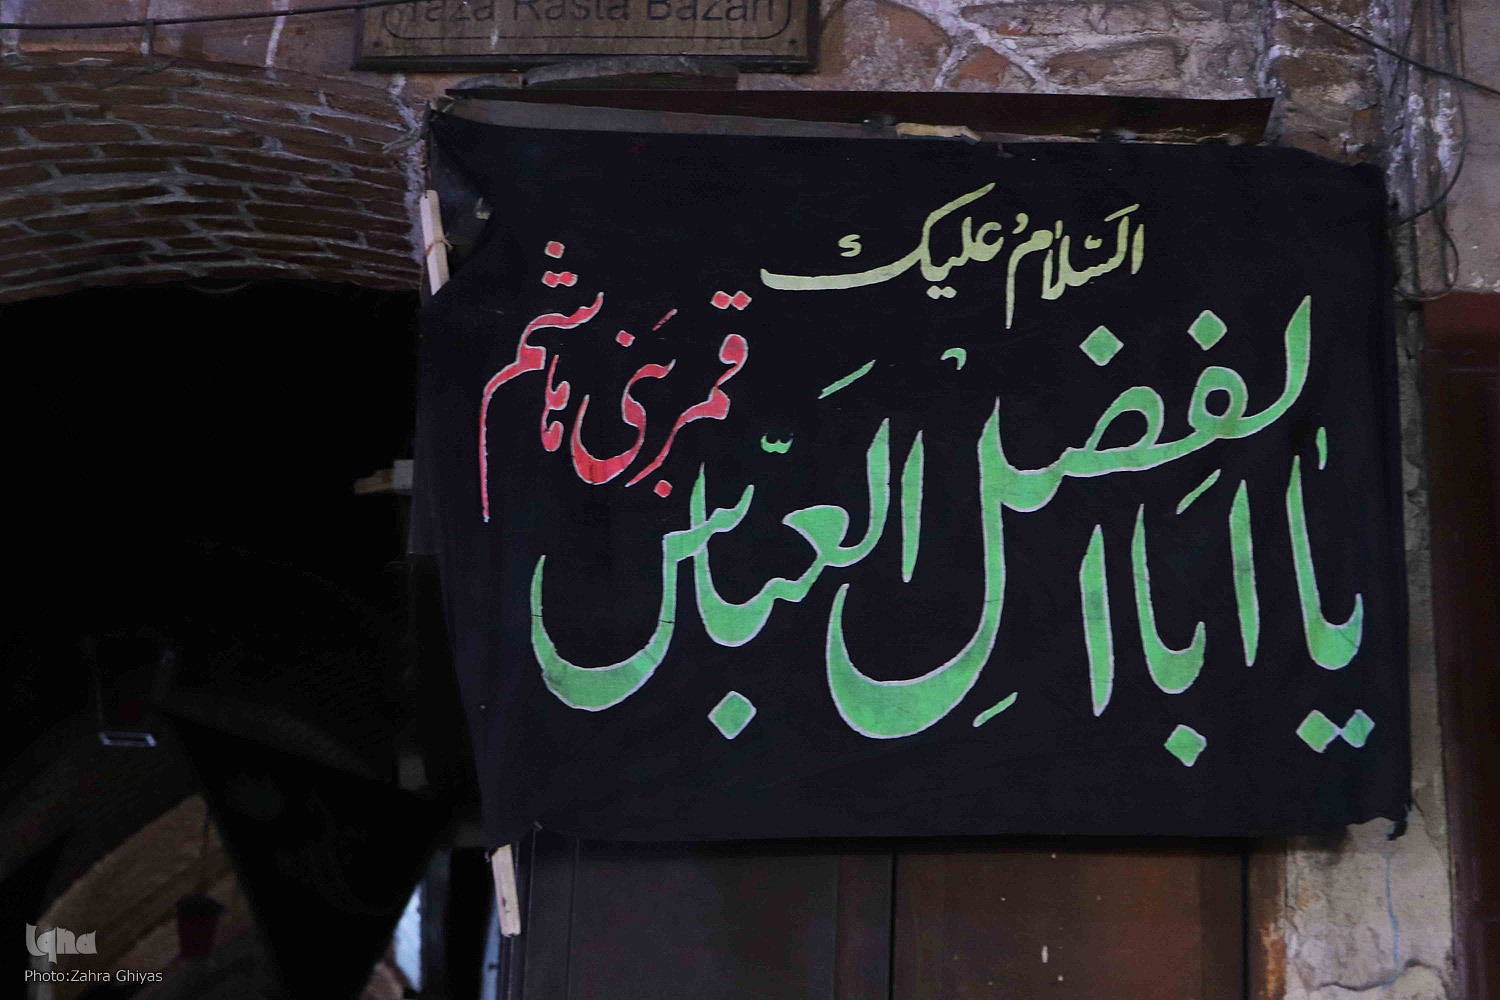 Taza Rasta Bazarı
السَّلامُ علیک
یا اباالفضلِ العبّاس
قمر بَنی هاشم
Iqna
Photo:Zahra Ghiyas